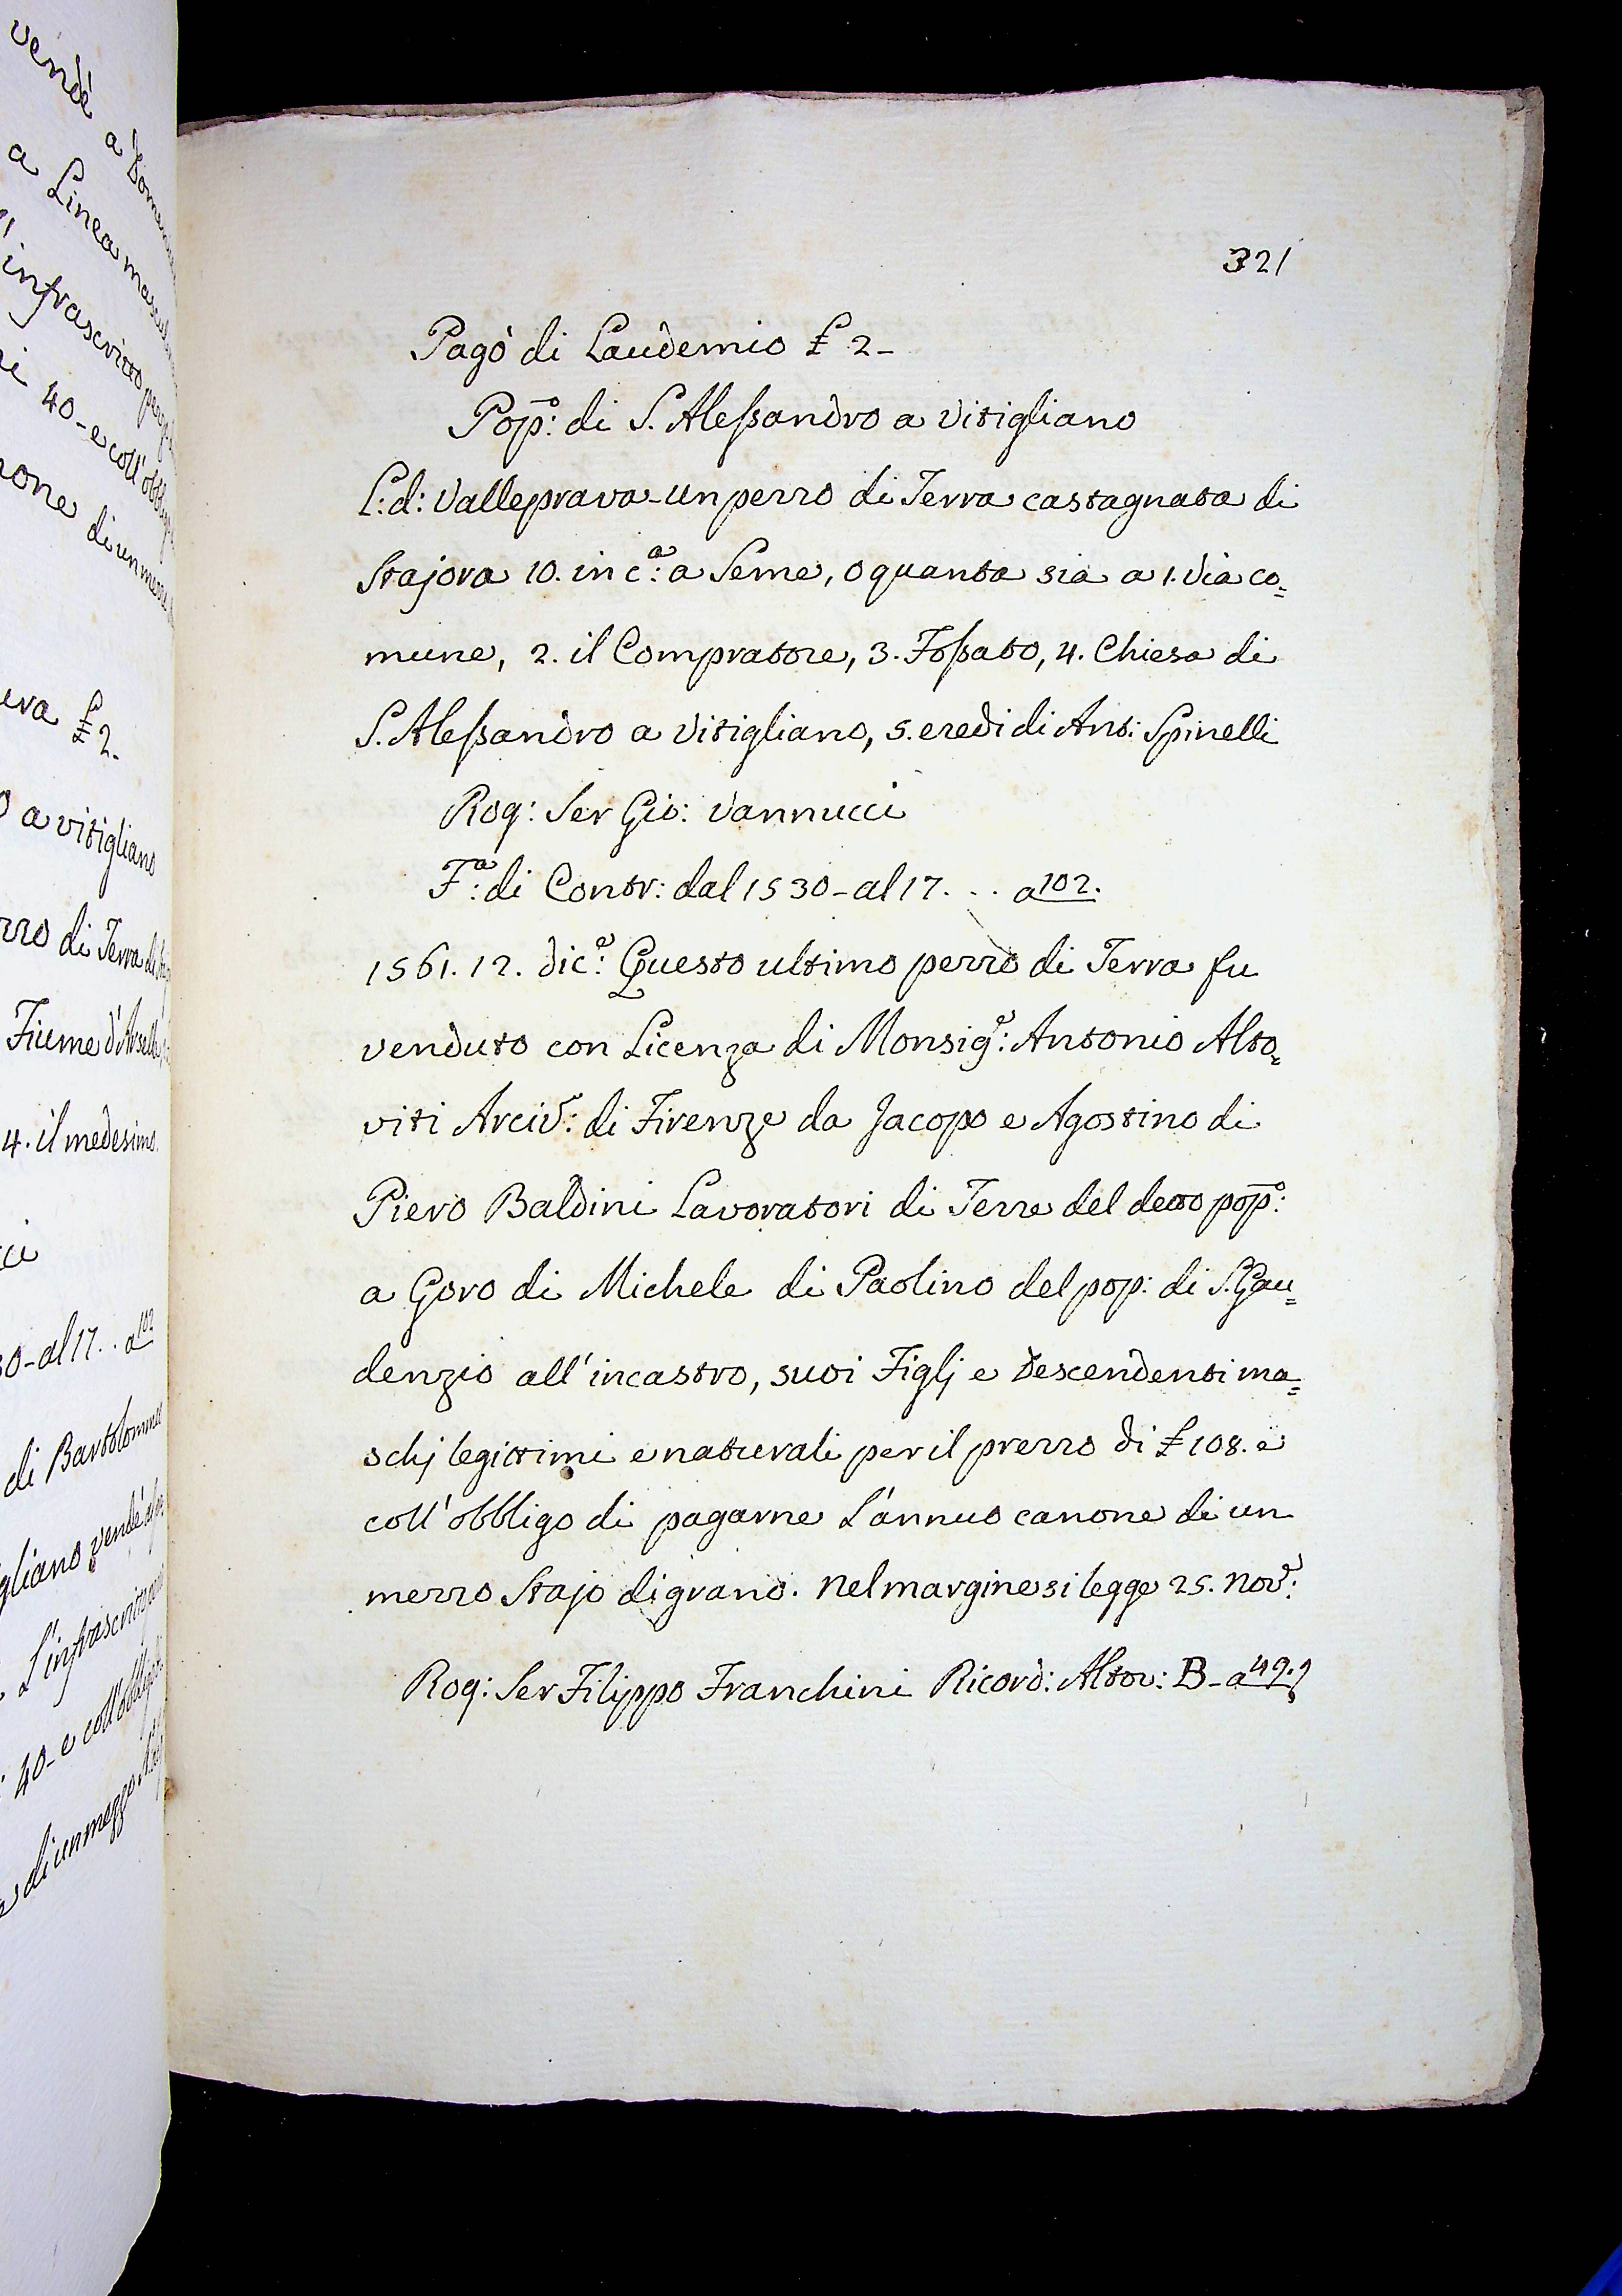 vendé a Dome
a Linea mascul
infrascritto pe
i 40 - e coll'obb
one di un mezzo
era £ 2.
o a vitigliano
zzo di Terra di
Fiume d'Arsell
4. il medesimo
ci
30 - al 17 . . a 102
di Bartolomme
gliano vendé a
L'infrascritto
40 - e coll'obbligo
e di un mezzo
321
Pagò di Laudemio £ 2 -
Popo: di S. Aleßandro a Vitigliano
L: d: Valleprava - un pezzo di Terra castagnata di
Stajora 10. in ca: a Seme, o quanta sia a 1. via co=
mune, 2. il Compratore, 3. Foßato, 4. Chiesa di
S. Aleßandro a Vitigliano, 5. eredi di Ant: Spinelli
Rog: Ser Gio: Vannucci
Fa: di Contr: dal 1530 - al 17 . . . a 102.
1561. 12. dice: Questo ultimo pezzo di Terra fu
venduto con Licenza di Monsige: Antonio Alto=
viti Arciv: di Firenze da Jacopo e Agostino di
Piero Baldini Lavoratori di Terre del detto popo:
a Goro di Michele di Paolino del pop: di S. Gau=
denzio all'incastro, suoi Figlj e descendenti ma=
schj legittimi e naturali per il prezzo di £ 108. e
coll'obbligo di pagarne L'annuo canone di un
mezzo Stajo di grano. nel margine si legge 25. nove:
Rog: Ser Filippo Franchini Ricord: Altov: B - a 49.